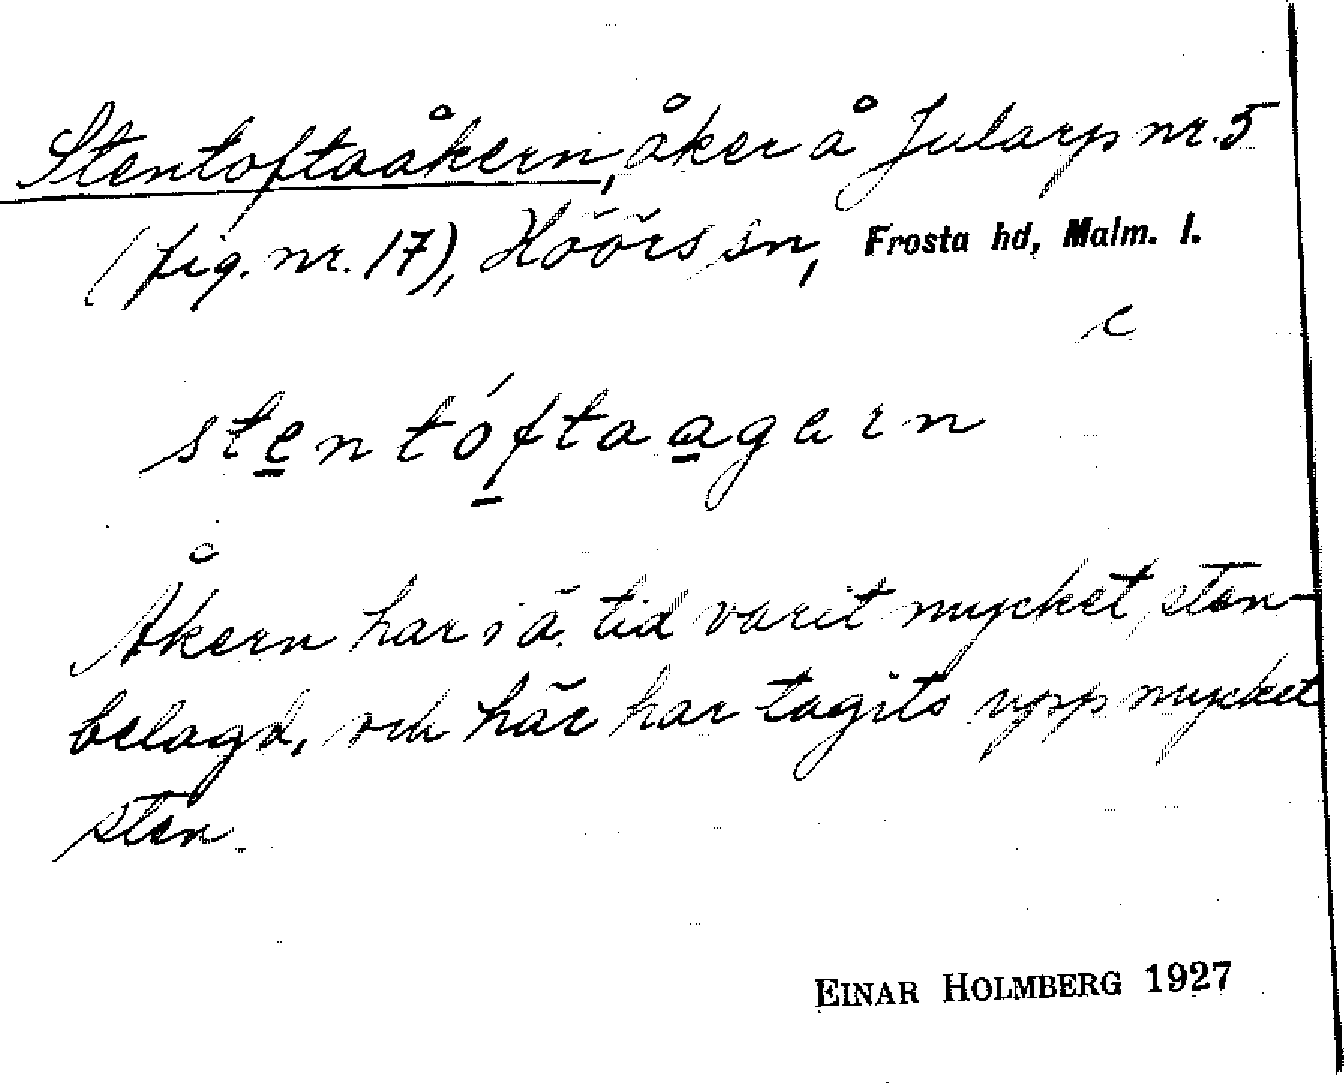 Stentoftaåkern, åker å Jularp nr. 5
(fig. nr. 17), Höörs sn, Frosta hd, Malm. l.
c
stentóftaagarn
Åkern har i ä. tid varit mycket sten-
belagd, och här har tagits upp mycket
sten.
EINAR HOLMBERG 1927